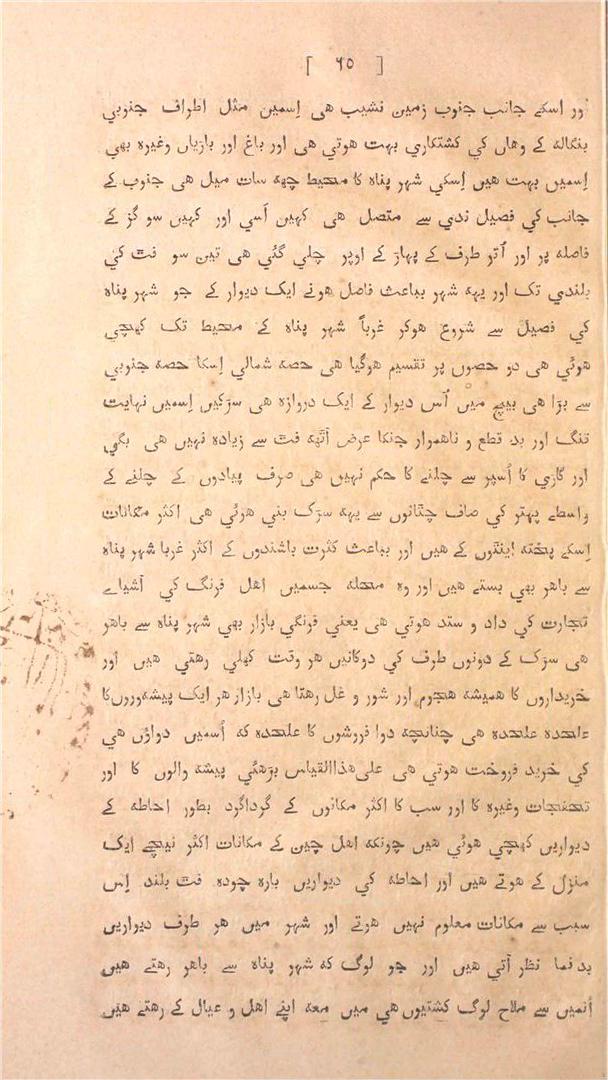 [ ٦٥ ]
اور اسکے جانب جنوب زمین نشیب هی اِسمین مثل اطراف جنوبي
بنگاله کے وهاں کي کشتکاري بہت هوتي هی اور باغ اور بازیاں وغیره بهي
اِسمیں بہت هیں اِسکي شہر پناه کا محیط چهہ سات میل هی جنوب کے
جانب کي فصیل ندي سے متصل هی کہیں اَسي اور کہیں سو گز کے
فاصله پر اور اُتر طرف کے پہاڑ کے اوپر چلي گئي هی تین سو فٹ کي
بلندي تک اور یہه شہر بباعث فاصل هونے ایک دیوار کے جو شہر پناه
کي فصیل سے شروع هوکر غرباً شہر پناه کے محیط تک کهچي
هوئي هی دو حصوں پر تقسیم هوگیا هی حصه شمالي اِسکا حصه جنوبي
سے بڑا هی بیچ میں اُس دیوار کے ایک دروازه هی سڑکیں اِسمیں نہایت
تنگ اور بد قطع و ناهموار جنکا عرض آٹهہ فٹ سے زیاده نہیں هی بگي
اور گاڑي کا اُسپر سے چلنے کا حکم نہیں هی صرف پیادوں کے چلنے کے
واسطے پتهر کي صاف چٹانوں سے یہه سڑک بني هوئي هی اکثر مکانات
اِسکے پخته اینٹوں کے هیں اور بباعث کثرت باشندوں کے اکثر غربا شہر پناه
سے باهر بهي بستے هیں اور وه محله جسمیں اهل فرنگ کي اشیاے
تجارت کي داد و ستد هوتي هی یعني فرنگي بازار بهي شہر پناه سے باهر
هی سڑک کے دونوں طرف کي دوکانیں هر وقت کهلي رهتي هیں اور
خریداروں کا همیشه هجوم اور شور و غل رهتا هی بازار هر ایک پیشه‌وروں‌کا
علحده علحده هی چنانچه دوا فروشوں کا علحده که اُسمیں دواؤں هي
کي خرید فروخت هوتي هی علیٰ‌هذاالقیاس بڑهئي پیشه والوں کا اور
تحفجات وغیره کا اور سب کا اکثر مکانوں کے گرداگرد بطور احاطه کے
دیواریں کهچي هوئي هیں چونکه اهل چین کے مکانات اکثر نیچے ایک
منزل کے هوتے هیں اور احاطه کي دیواریں باره چوده فٹ بلند اِس
سبب سے مکانات معلوم نہیں هوتے اور شہر میں هر طرف دیواریں
بد نما نظر آتي هیں اور جو لوگ که شہر پناه سے باهر رهتے هیں
اُنمیں سے ملاح لوگ کشتیوں هي میں معه اپنے اهل و عیال کے رهتے هیں